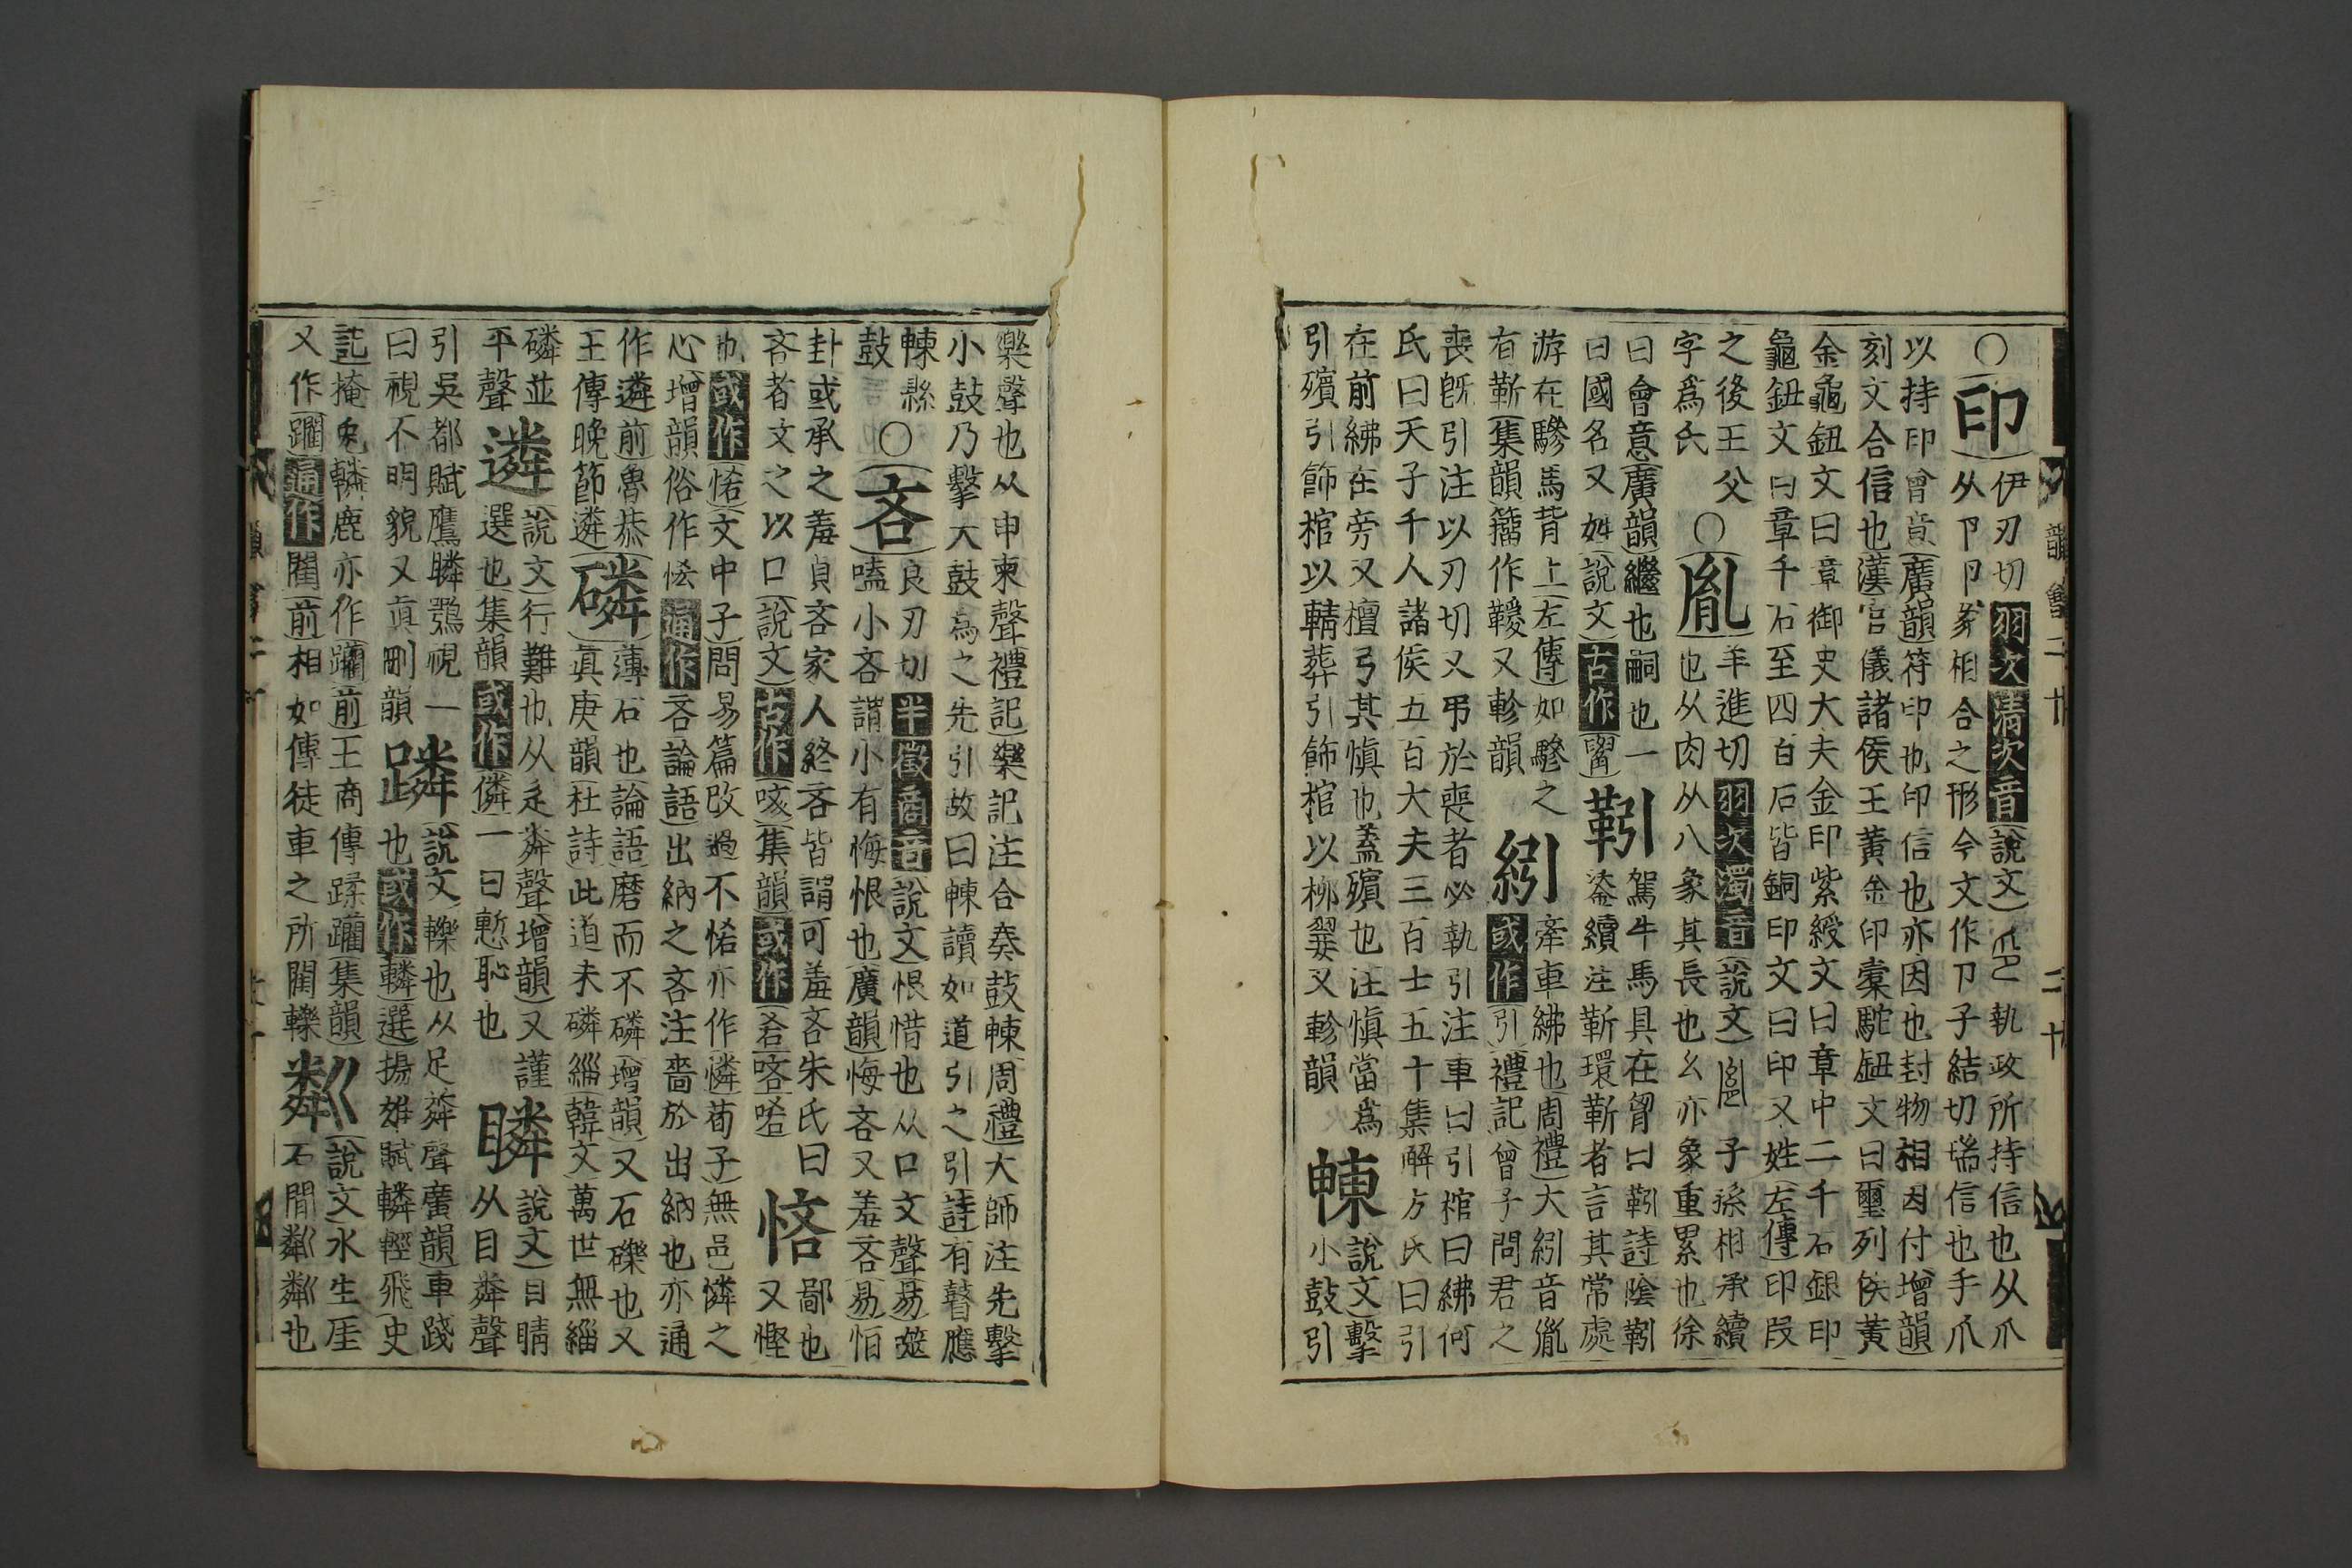 ○印伊刃切羽次清次音說文執政所持信也从爪
从卪卪象相合之形今文作卪子結切瑞信也手爪
以持印會意廣韻符印也印信也亦因也封物相因付增韻
刻文合信也漢官儀諸侯王黃金印橐駝鈕文曰璽列侯黃
金龜鈕文曰章御史大夫金印紫綬文曰章中二千石銀印
龜鈕文曰章千石至四百石皆銅印文曰印又姓左傳印段
之後王父
字爲氏
○胤羊進切羽次濁音說文子孫相承續
也从肉从八象其長也幺亦象重累也徐
曰會意廣韻繼也嗣也一
曰國名又姓說文古作
靷駕牛馬具在胷曰靷詩陰靷
鋈續注靳環靳者言其常處
游在驂馬背上左傳如驂之
有靳集韻籒作䩥又軫韻
紖牽車紼也周禮大紖音胤
或作引禮記曾子問君之
喪旣引注以刃切又弔於喪者必執引注車曰引棺曰紼何
氏曰天子千人諸侯五百大夫三百士五十集解方氏曰引
在前紼在旁又檀弓其愼也蓋殯也注愼當爲
引殯引飾棺以輤葬引飾棺以柳翣又軫韻
𣌾說文擊
小鼓引
樂聲也从申柬聲禮記樂記注合奏鼓𣌾周禮大師注先擊
小鼓乃擊大鼓爲之先引故曰𣌾讀如道引之引詩有瞽應
𣌾縣
鼓
○吝良刃切半徵商音說文恨惜也从口文聲易筮
嗑小吝謂小有悔恨也廣韻悔吝又羞吝易怕
卦或承之羞貞吝家人終吝皆謂可羞吝朱氏曰
吝者文之以口說文古作㖁集韻或作㖁㗉
悋鄙也
又慳
也或作㤁文中子問易篇改過不悋亦作憐荀子無邑憐之
心增韻俗作恡通作吝論語出納之吝注嗇於出納也亦通
作遴前魯恭
王傳晚節遴
磷薄石也論語磨而不磷增韻又石礫也又
眞庚韻杜詩此道未磷緇韓文萬世無緇
磷並
平聲
遴說文行難也从辵粦聲增韻又謹
選也集韻或作僯一曰慙恥也
瞵說文目睛
从目粦聲
引吳都賦鷹瞵鶚視一
曰視不明貌又眞刪韻
蹸說文轢也从足粦聲廣韻車踐
也或作轔選揚雄賦轔輕飛史
記掩兔轔鹿亦作躪前王商傳蹂躪集韻
又作躙通作閵前相如傳徒車之所閵轢
粼說文水生厓
石閒粼粼也